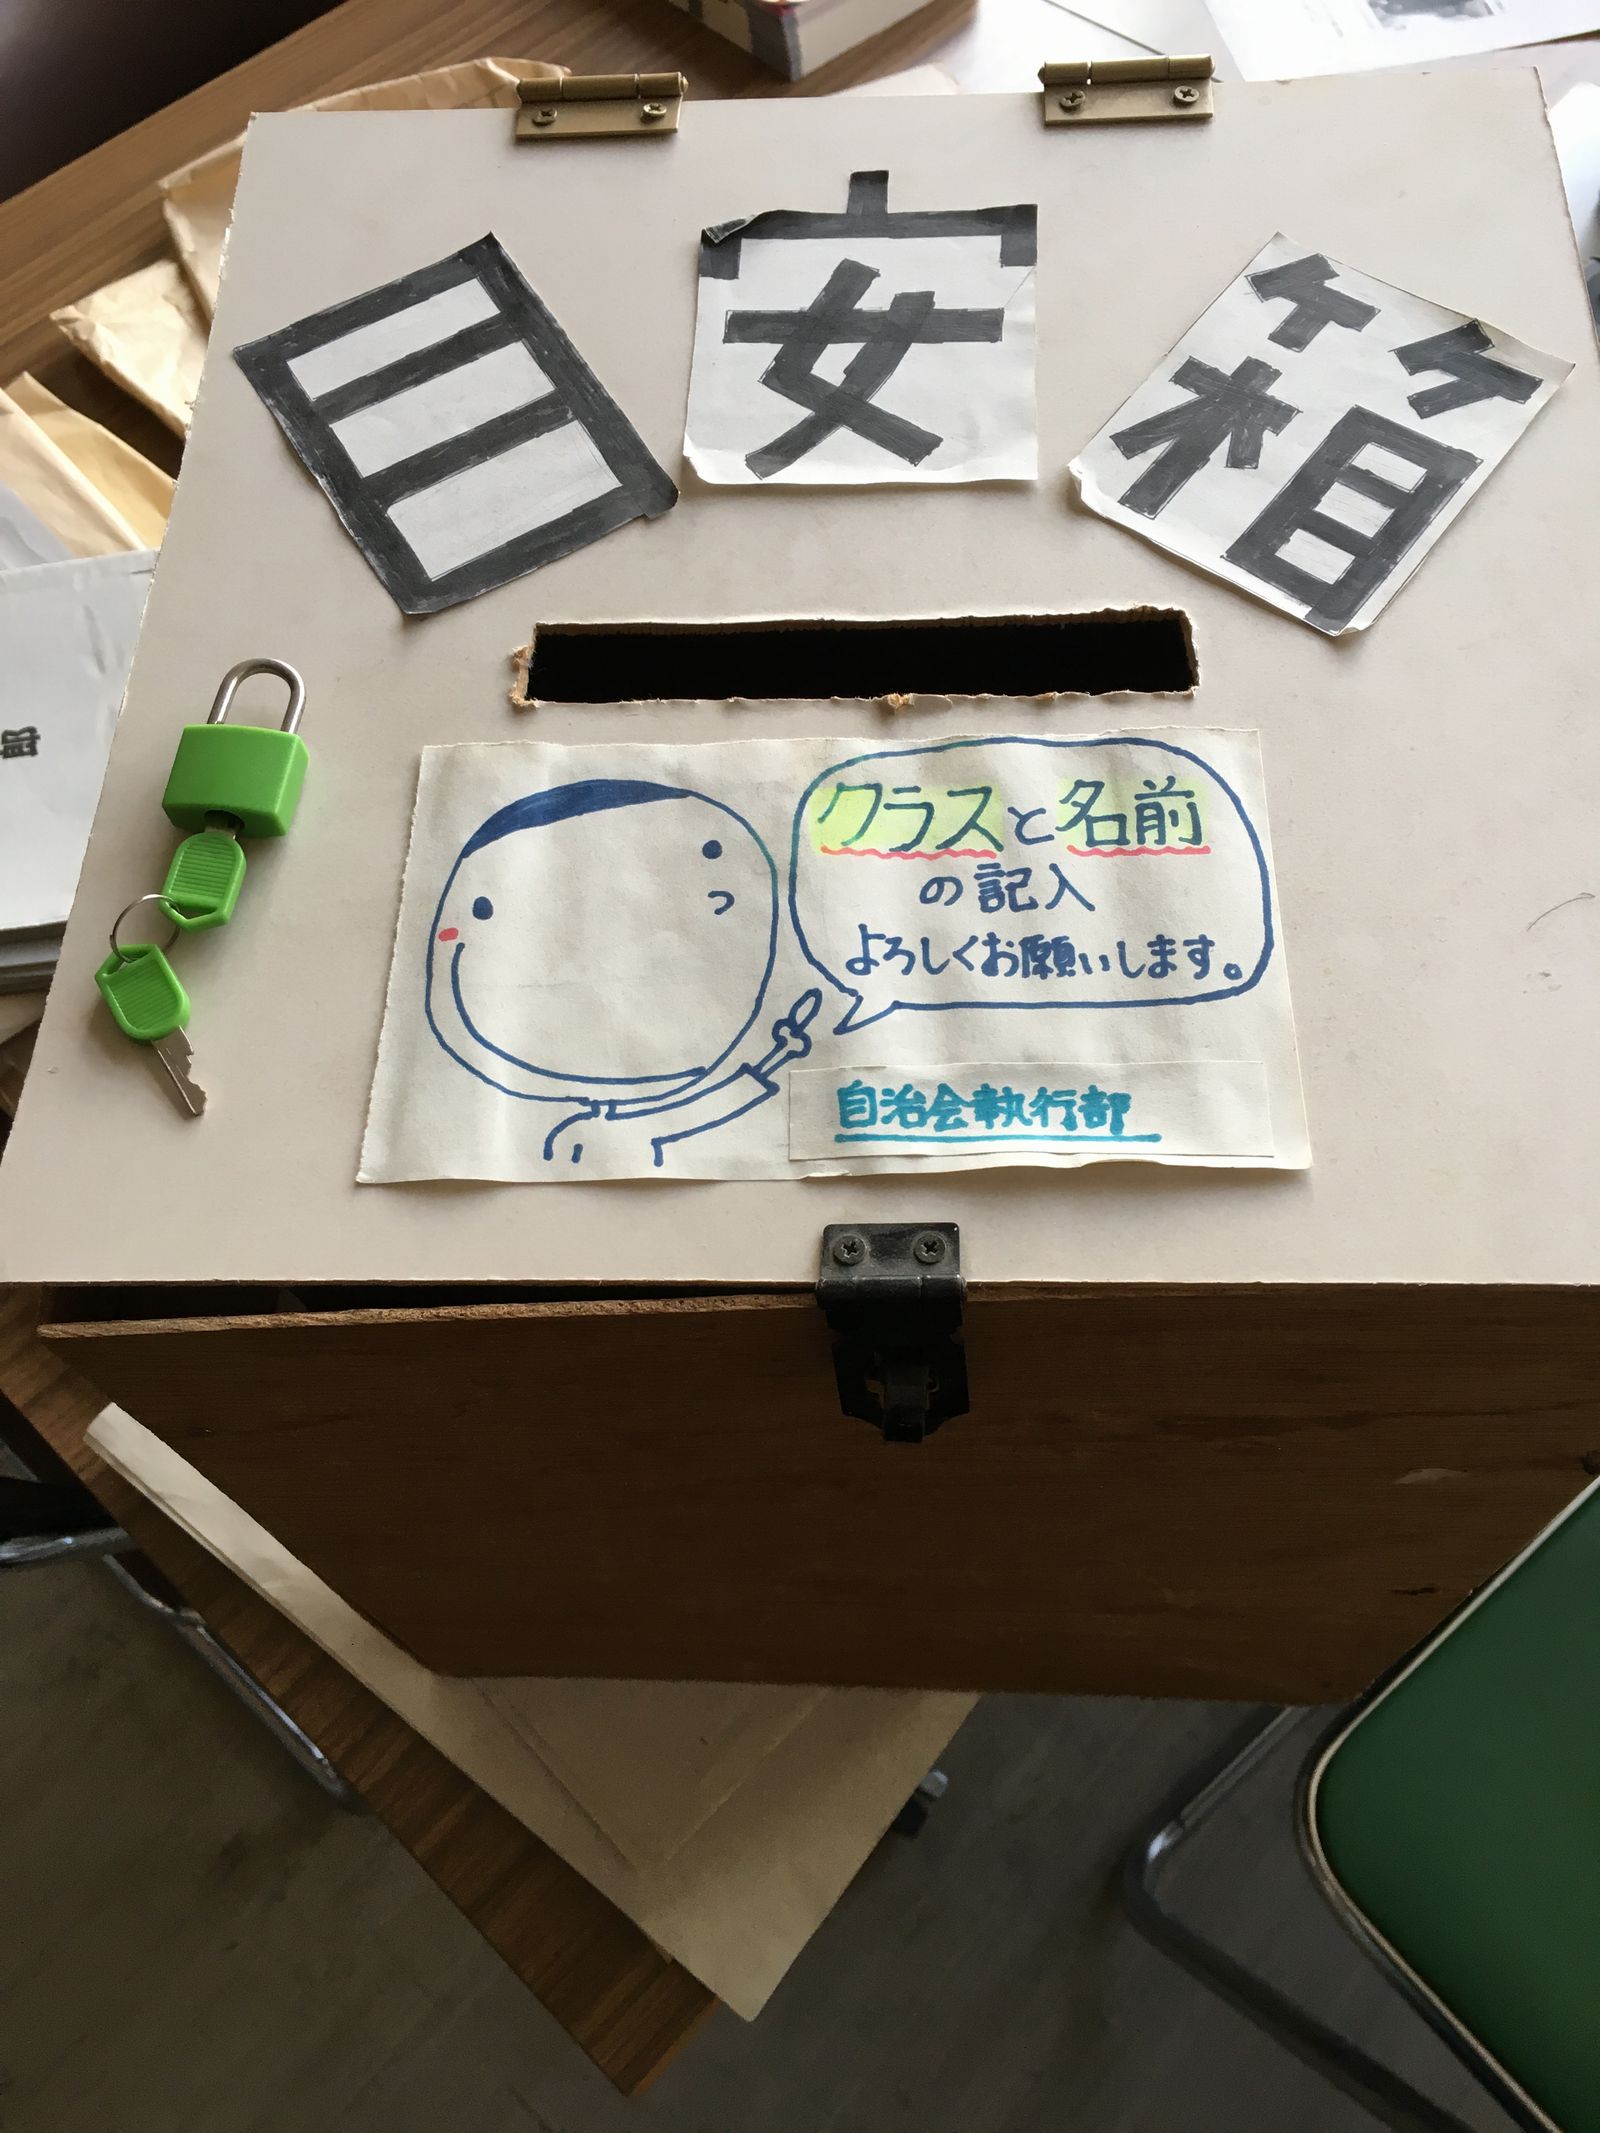 目安箱
クラスと名前
の記入
よろしくお願いします。
自治会執行部
部